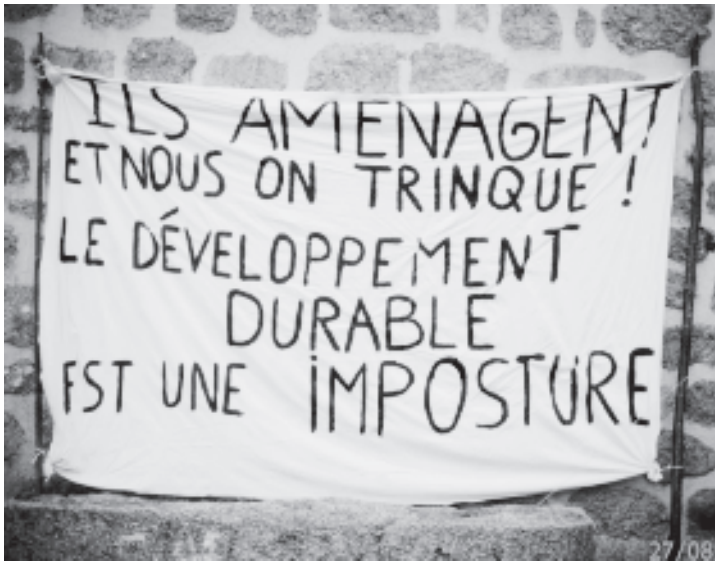 ILS AMENAGENT
ET NOUS ON TRINQUE !
LE DÉVELOPPEMENT
DURABLE
EST UNE IMPOSTURE
27/08